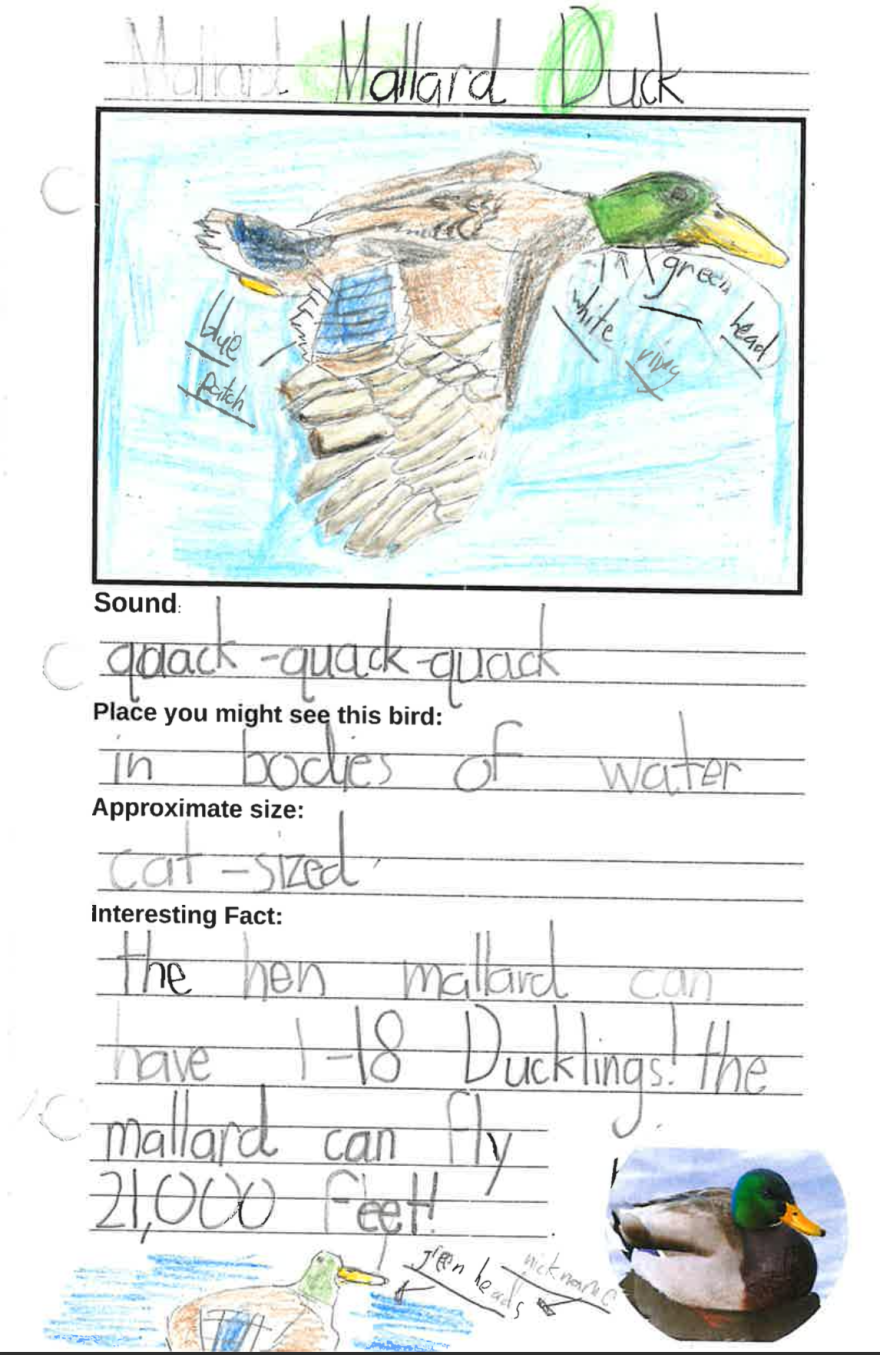 Mallard Mallard Duck
green
white ring head
blue
patch
Sound:
quack-quack-quack
Place you might see this bird:
in bodies of water
Approximate size:
cat-sized
Interesting Fact:
the hen mallard can
have 1-18 Ducklings! the
mallard can fly
21,000 feet!
green heads nickname